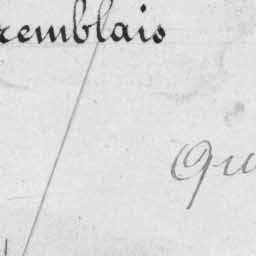 remblais
Qu